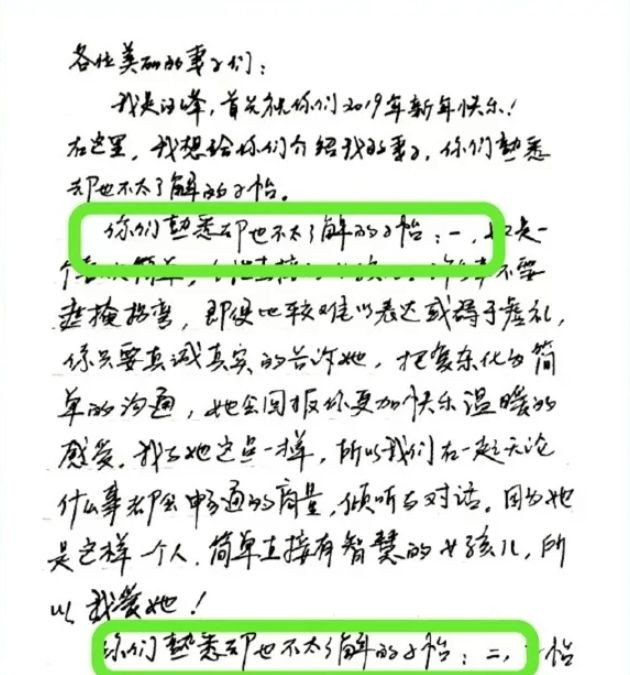 各位美丽的妻子们：
我是汪峰，首先祝你们2019年新年快乐！
在这里，我想给你们介绍我的妻子，你们熟悉
却也不太了解的子怡。
你们熟悉却也不太了解的子怡：一，她是一
个 简单， 不要
遮掩拐弯，即便比较难以表达或碍于虚礼，
你只要真诚真实的告诉她，把复杂化为简
单的沟通，她会回报你更加快乐温暖的
感受。我与她这点一样，所以我们在一起无论
什么事都会畅通的商量，倾听与对话。因为她
是这样一个人，简单直接有智慧的女孩儿，所
以我爱她！
你们熟悉却也不太了解的子怡：二， 怡